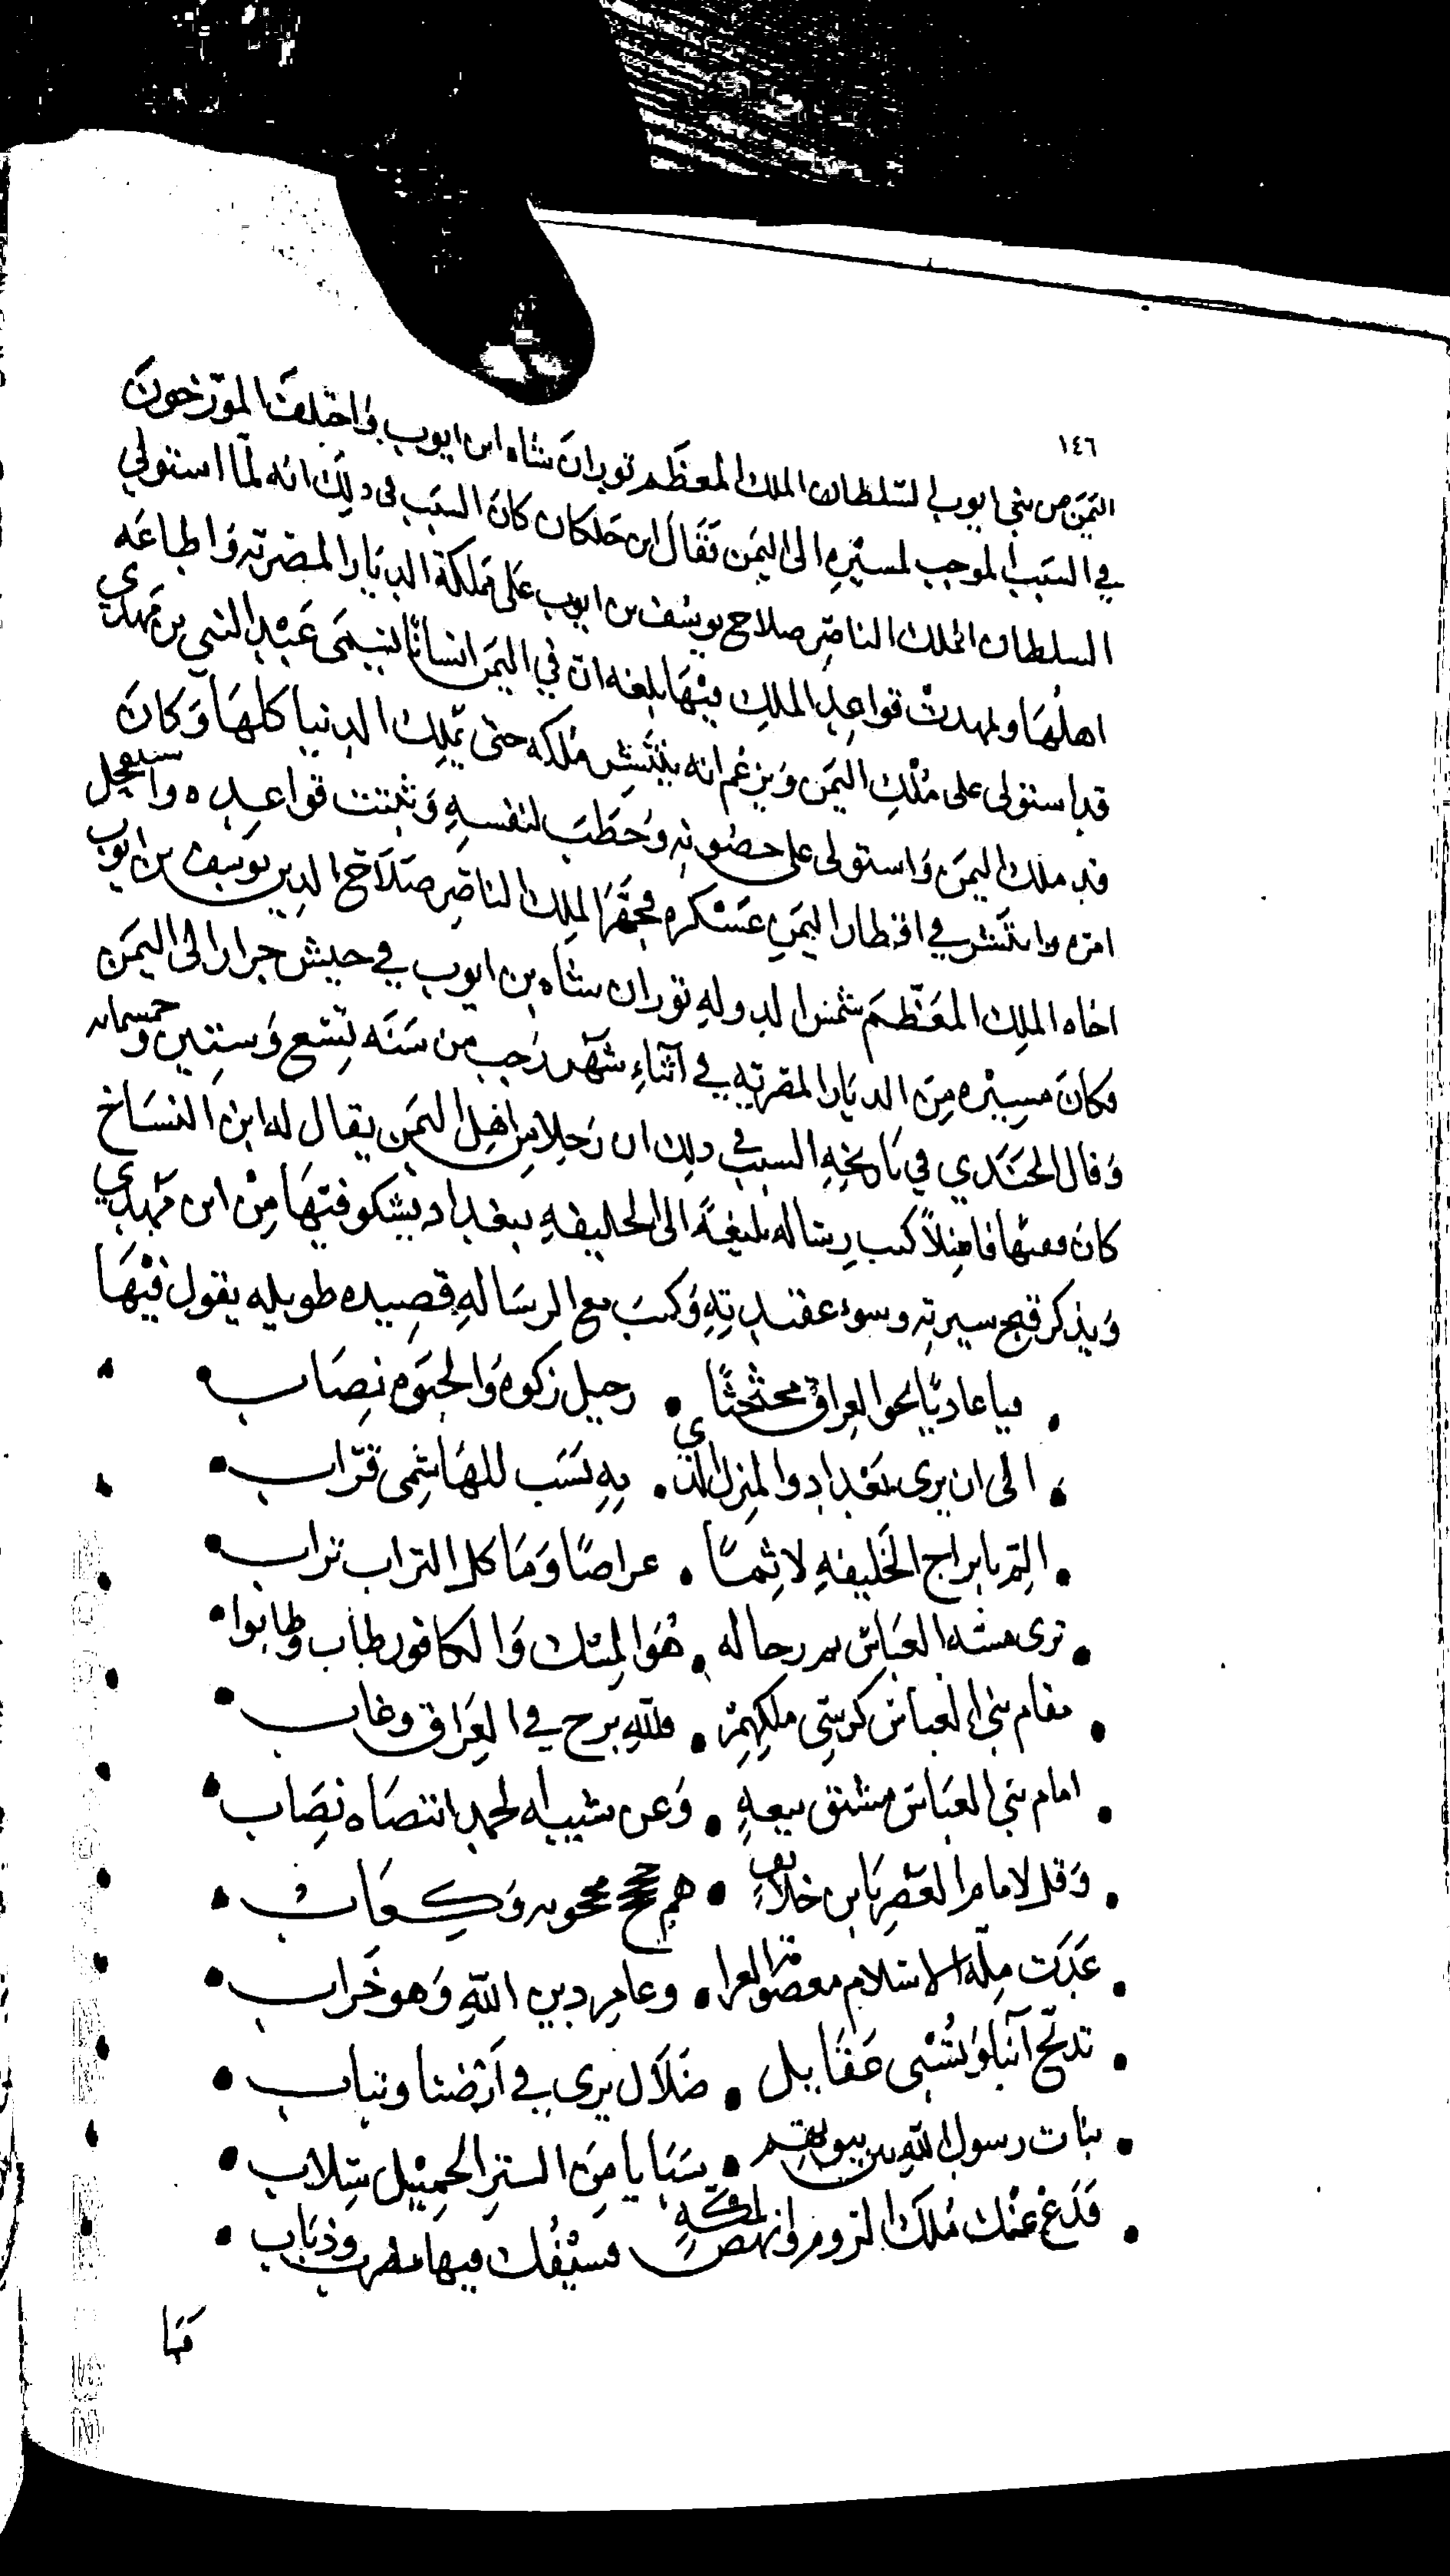 ١٤٦
اليمن من بني ايوب السلطان الملك المعظم توران شاه ابن ايوب واختلف المورخون
في السبب الموجب لمسيره الى اليمن فقال ابن خلكان كان السبب في ذلك انه لما استولى
السلطان الملك الناصر صلاح يوسف بن ايوب على مملكة الديار المصريه واطاعه
اهلها وتمهدت قواعد الملك فيها بلغه ان في اليمن انسانا يسمى عبد النبي بن مهدي
قد استولى على ملك اليمن ويزعم انه ينتشر ملكه حتى يملك الدنيا كلها وكان
قد ملك اليمن واستولى على حصونه وخطب لنفسه وثبتت قواعده واستفحل
امره وانتشر في اقطار اليمن عسكره فجهز الملك الناصر صلاح الدين يوسف بن ايوب
اخاه الملك المعظم شمس الدوله توران شاه بن ايوب في جيش جرار الى اليمن
فكان مسيره من الديار المصريه في آثناء شهر رجب من سنه تسع وستين وخمسمايه
وقال الجندي في تاريخه السبب في ذلك ان رجلا من اهل اليمن يقال له ابن النساخ
كان فقيها فاضلا كتب رساله بليغة الى الخليفه ببغداد يشكو فيها من ابن مهدي
ويذكر قبح سيرته وسوء عقيدته وكتب مع الرساله قصيده طويله يقول فيها
فيا غاديا نحو العراق محثحثا • رحيل زكوه والحتوم نصاب
الى ان يرى بغداد والمنزل الذي • به نسب للهاشمي قراب
التم بابراج الخليفه لاثما • عراصا وما كل التراب تراب
ترى مسه العباس رحاله • هو المسك والكافور طاب وطابوا
مقام بني العباس كرسي ملكهم • فلله برج في العراق وغاب
امام بني العباس مشتق بيعه • وعن شيبه الحمد انتصاه نصاب
وقل لامام العصر يا بن خلايف • هم محجوبه وكعاب
غدت مله الاسلام معصو العرا • وعامر دين الله وهو خراب
تذبح آبنا وتسبى عقايل • ضلال يرى في ارضنا وتباب
بنات رسول الله بين بيوتهم • سبايا من الستر الجميل سلاب
فدع عنك ملك الروم وانهض لمكه • فسيفك فيها مضرب وذباب
فما